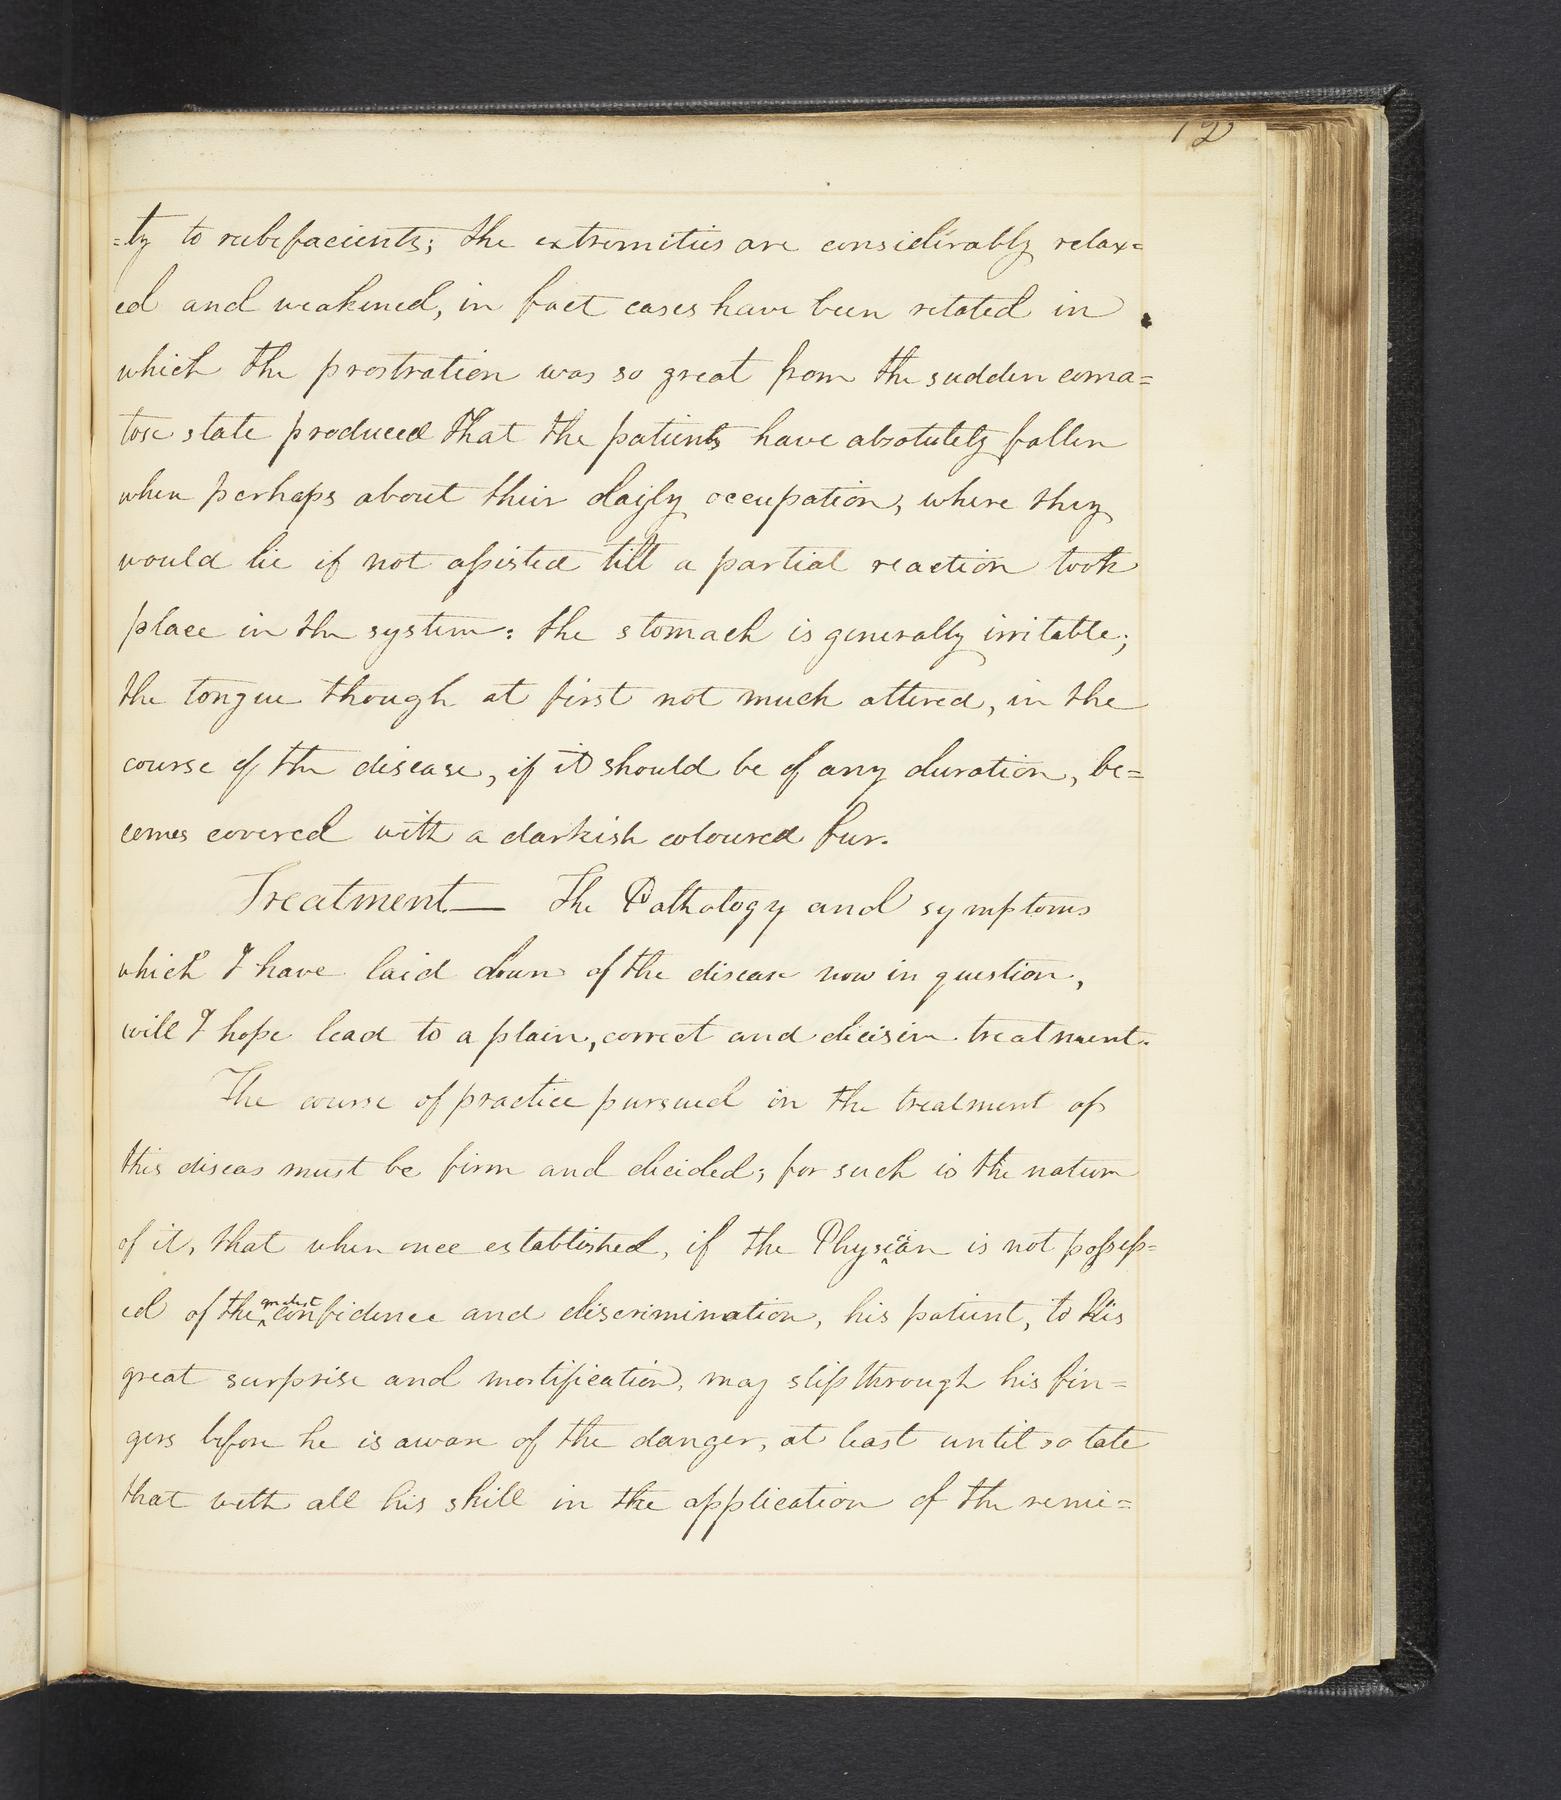 12
=ty to rubefacients; the extremities are considerably relax=
ed and weakened, in fact cases have been related in
which the prostration was so great from the sudden coma=
tose state produced that the patients have absolutely fallen
when perhaps about their daily occupation, where they
would lie if not assisted till a partial reaction took
place in the system: the stomach is generally irritable;
the tongue though at first not much altered, in the
course of the disease, if it should be of any duration, be=
comes covered with a darkish coloured fur.
Treatment— The Pathology and symptoms
which I have laid down of the disease now in question,
will I hope lead to a plain, correct and decisive treatment.
The course of practice pursued in the treatment of
this diseas must be firm and decided; for such is the nature
of it, that when once established, if the Physician is not possess=
ed of the greatest confidence and discrimination, his patient, to his
great surprise and mortification, may slip through his fin=
gers before he is aware of the danger, at least until so late
that with all his skill in the application of the reme=